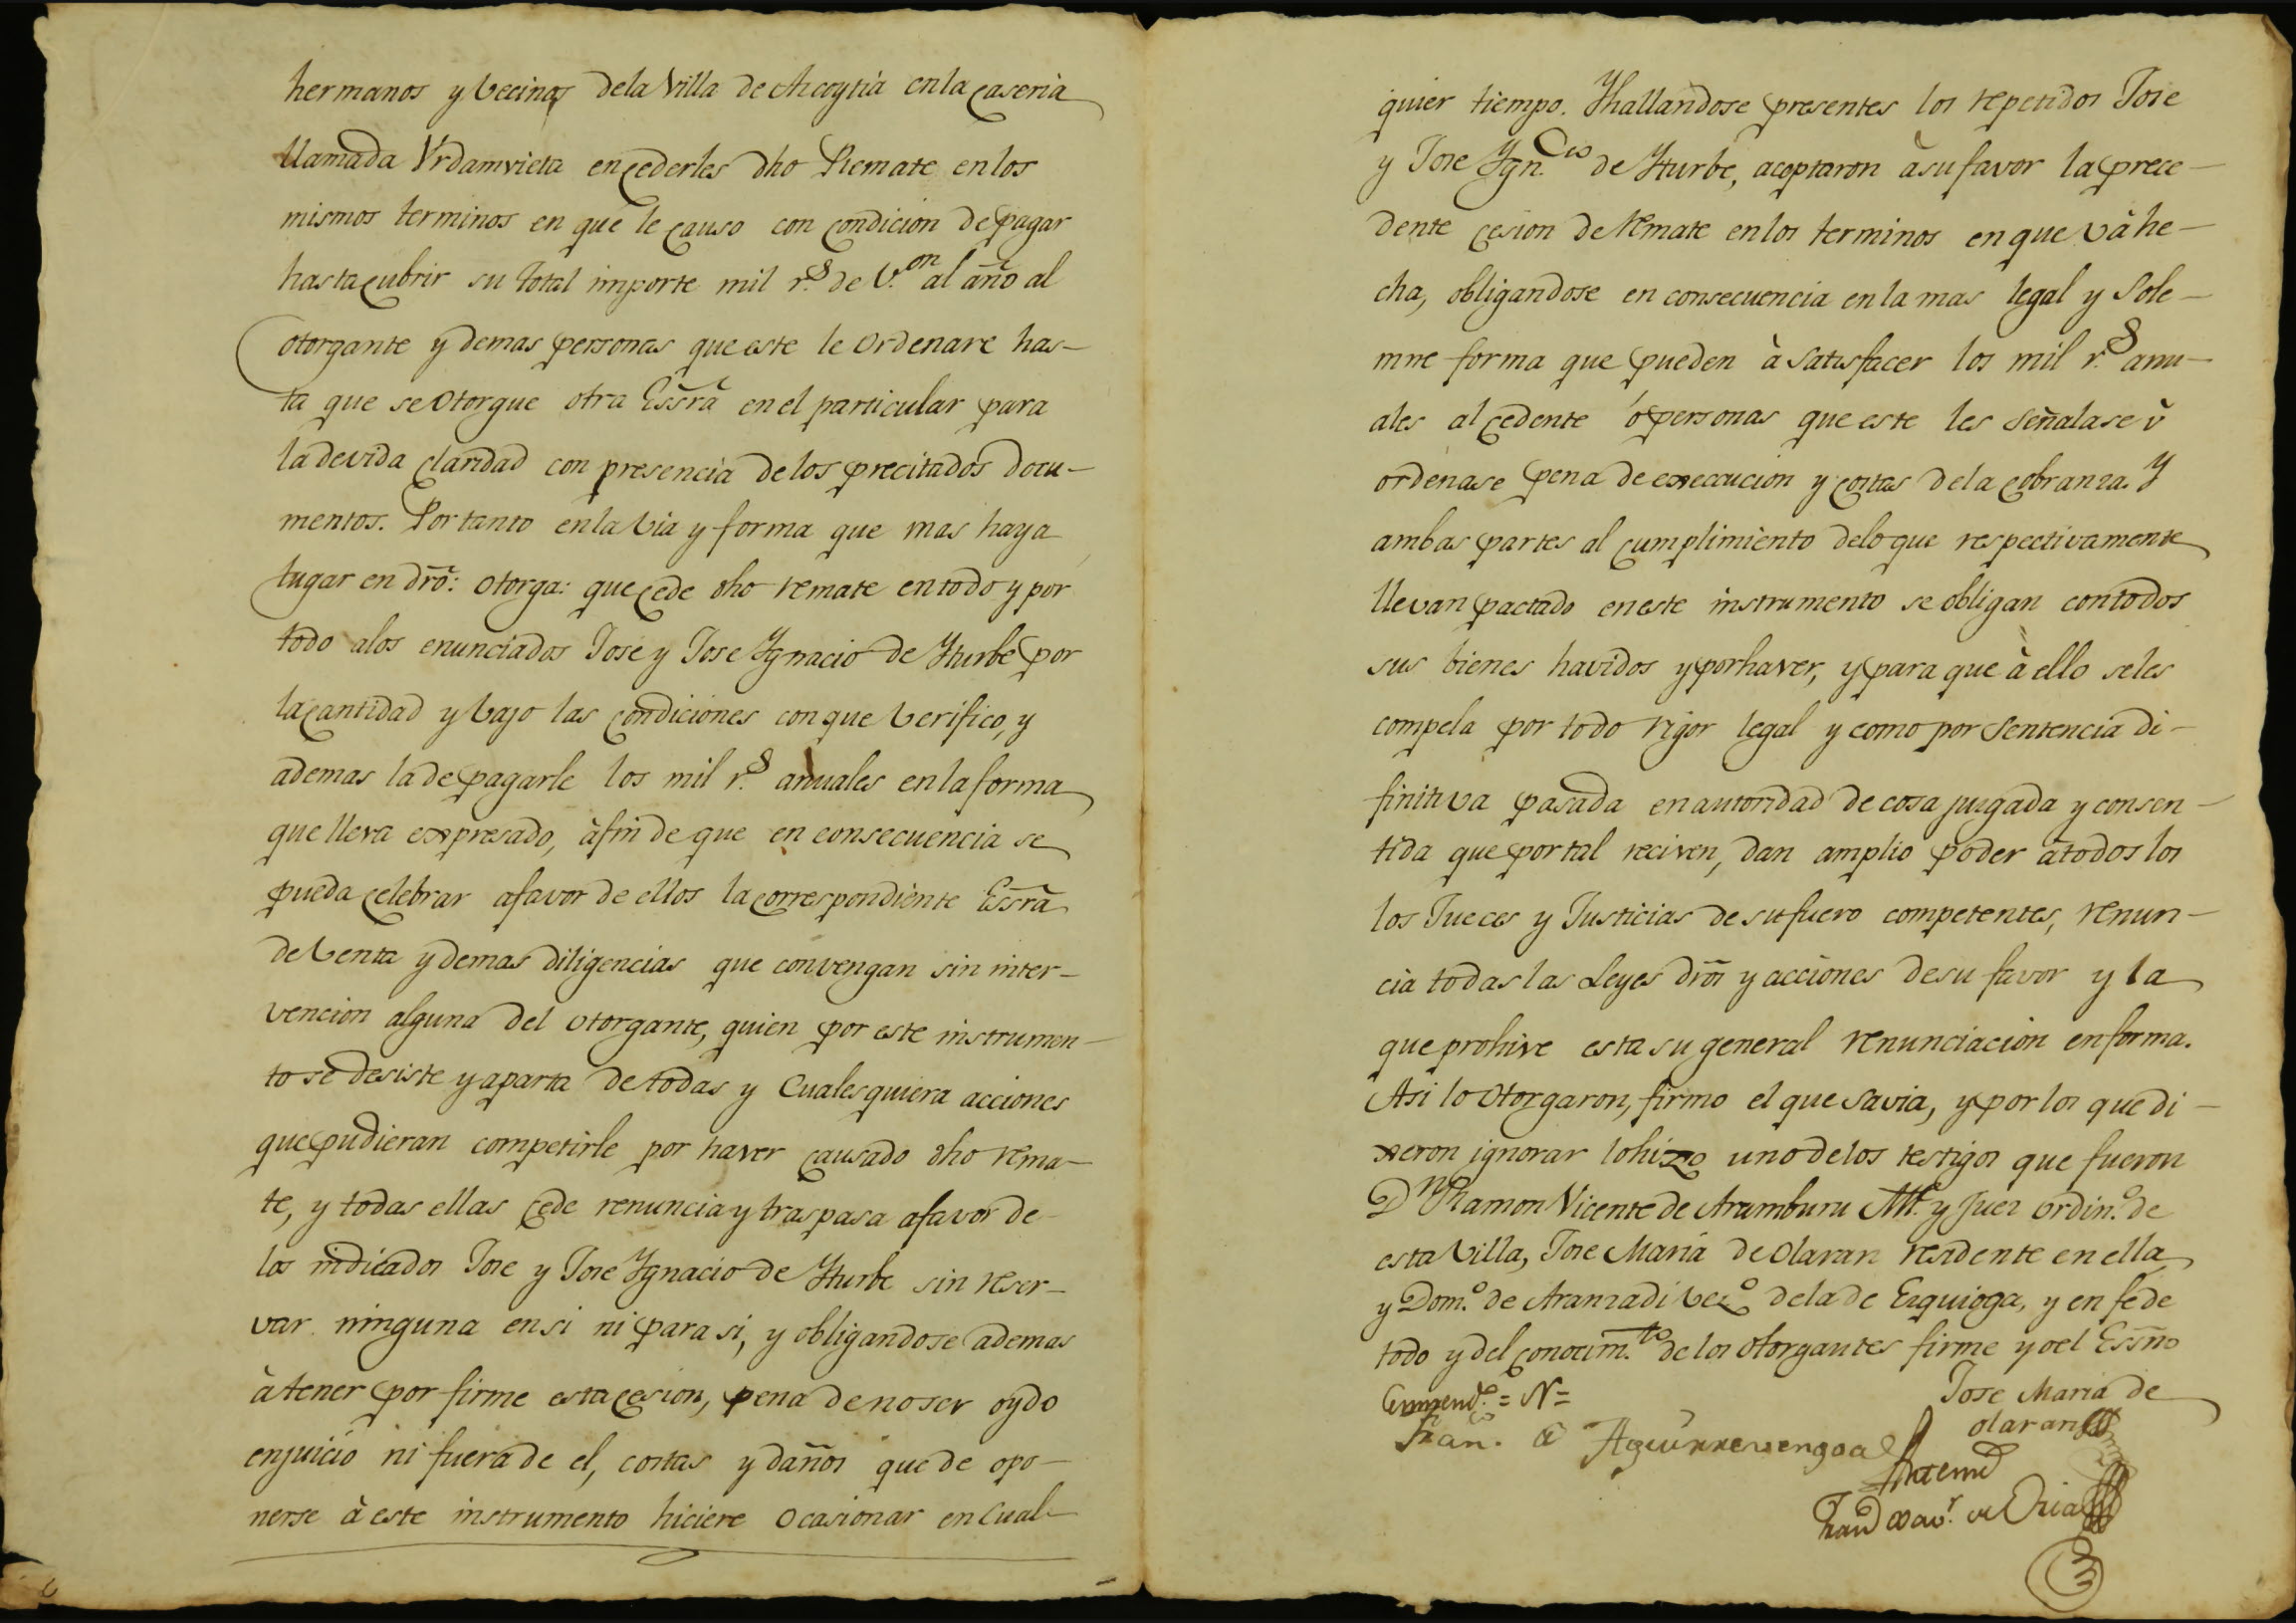 hermanos y Vecinos dela Villa de Azcoytia en la caseria
llamada Vrdamvieta en cederles dho Remate en los
mismos terminos en que le causo con condicion de pagar
hasta cubrir su total importe mil r.s de V.on al año al
otorgante y demas personas que este le ordenare has-
ta que se otorgue otra Essrã en el particular para
la devida claridad con presencia de los precitados docu-
mentos. Por tanto en la Via y forma que mas haya
lugar en drõ: otorga: que cede dho remate en todo y por
todo a los enunciados Jose y Jose Ygnacio de Yturbe por
la cantidad y bajo las condiciones con que Verifico, y
ademas la de pagarle los mil r.s anuales en la forma
que lleva expresado, à fin de que en consecuencia se
pueda celebrar a favor de ellos la correspondiente Essrã
de Venta y demas diligencias que convengan sin inter-
vencion alguna del otorgante, quien por este instrumen-
to se desiste y aparta de todas y Cualesquiera acciones
que pudieran competirle por haver causado dho rema-
te, y todas ellas cede renuncia y traspasa a favor de
los indicados Jose y Jose Ygnacio de Yturbe sin reser-
var ninguna en si ni para si, y obligandose ademas
à tener por firme esta cesion, pena de no ser oydo
en juicio ni fuera de el, costas y daños que de opo-
nerse à este instrumento hiciere ocasionar en Cual-
quier tiempo. Y hallandose presentes los repetidos Jose
y Jose Ygn.cio de Yturbe, aceptaron à su favor la prece-
dente cesion de remate en los terminos en que và he-
cha, obligandose en consecuencia en la mas legal y Sole-
mne forma que pueden à satisfacer los mil r.s anu-
ales al cedente ó personas que este les señalase ù
ordenase pena de execucion y costas de la cobranza. Y
ambas partes al cumplimiento de lo que respectivamente
llevan pactado en este instrumento se obligan con todos
sus bienes havidos y por haver, y para que à ello se les
compela por todo rigor legal y como por Sentencia di-
finitiva pasada en autoridad de cosa juzgada y consen-
tida que por tal reciven, dan amplio poder à todos los
los Jueces y Justicias de su fuero competentes, renun-
cia todas las Leyes drõs y acciones de su favor y la
que prohive esta su general renunciacion en forma.
Asi lo otorgaron, firmo el que savia, y por los que di-
xeron ignorar lo hizo uno de los testigos que fueron
D.n Ramon Vicente de Aramburu Alc.e y Juez ordin.o de
esta Villa, Jose Maria de Olaran residente en ella
y Dom.o de Aranzadi vez.o de la de Ezquioga, y en fe de
todo y del conocim.to de los otorgantes firme yo el Essño
Enmend.o = N =
Jose Maria de
Olaran
Fran.co de Aguirrevengoa
Antemi
Fran.co Xav.r de Oria